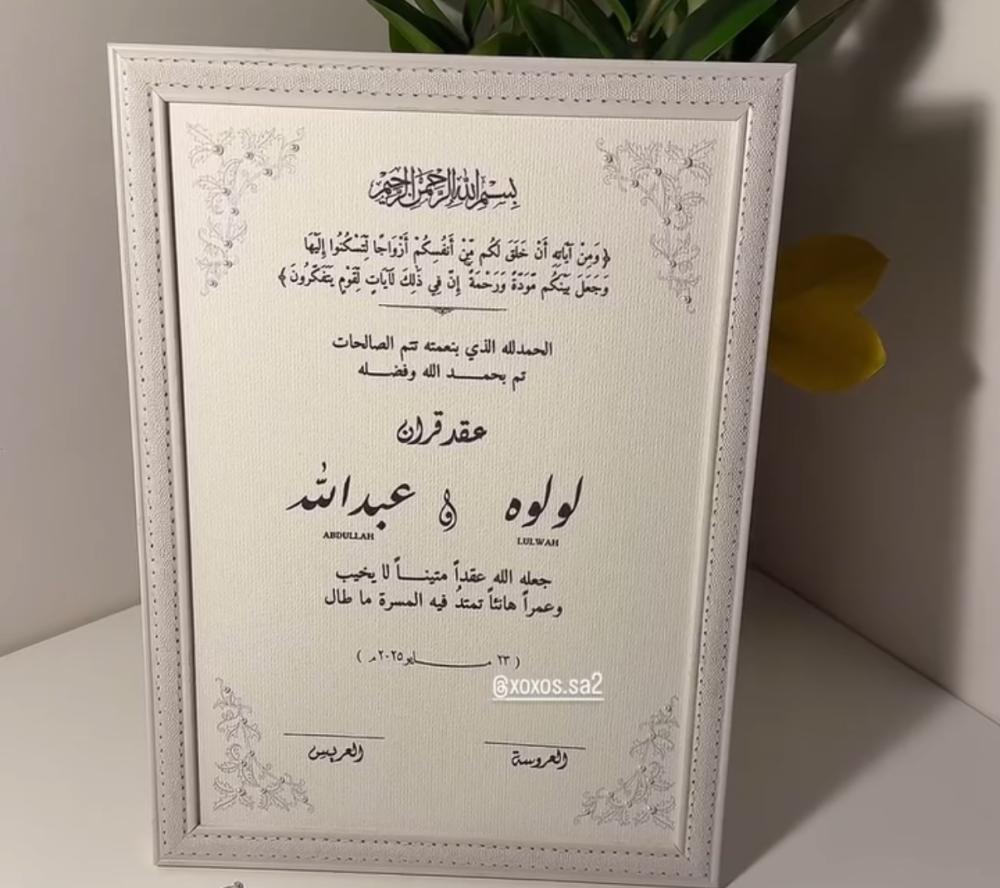 بسم الله الرحمن الرحيم
﴿وَمِنْ آيَاتِهِ أَنْ خَلَقَ لَكُم مِّنْ أَنفُسِكُمْ أَزْوَاجًا لِّتَسْكُنُوا إِلَيْهَا
وَجَعَلَ بَيْنَكُم مَّوَدَّةً وَرَحْمَةً إِنَّ فِي ذَٰلِكَ لَآيَاتٍ لِّقَوْمٍ يَتَفَكَّرُونَ﴾
الحمدلله الذي بنعمته تتم الصالحات
تم بحمـــد الله وفضـــله
عقد قران
لولوه و عبدالله
LULWAH ABDULLAH
جعله الله عقداً متينـــاً لا يخيب
وعمراً هانئاً تمتدُ فيه المسرة ما طال
( ٢٣ مـــــــايو٢٠٢٥م )
@xoxos.sa2
العروسة العريس